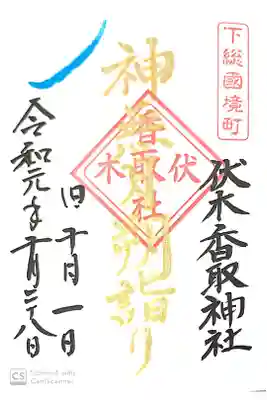 下総國境町
伏木香取神社
伏木
香取社
神無月朔詣り
旧十月一日
令和元年十月二八日
CS Scanned with
CamScanner